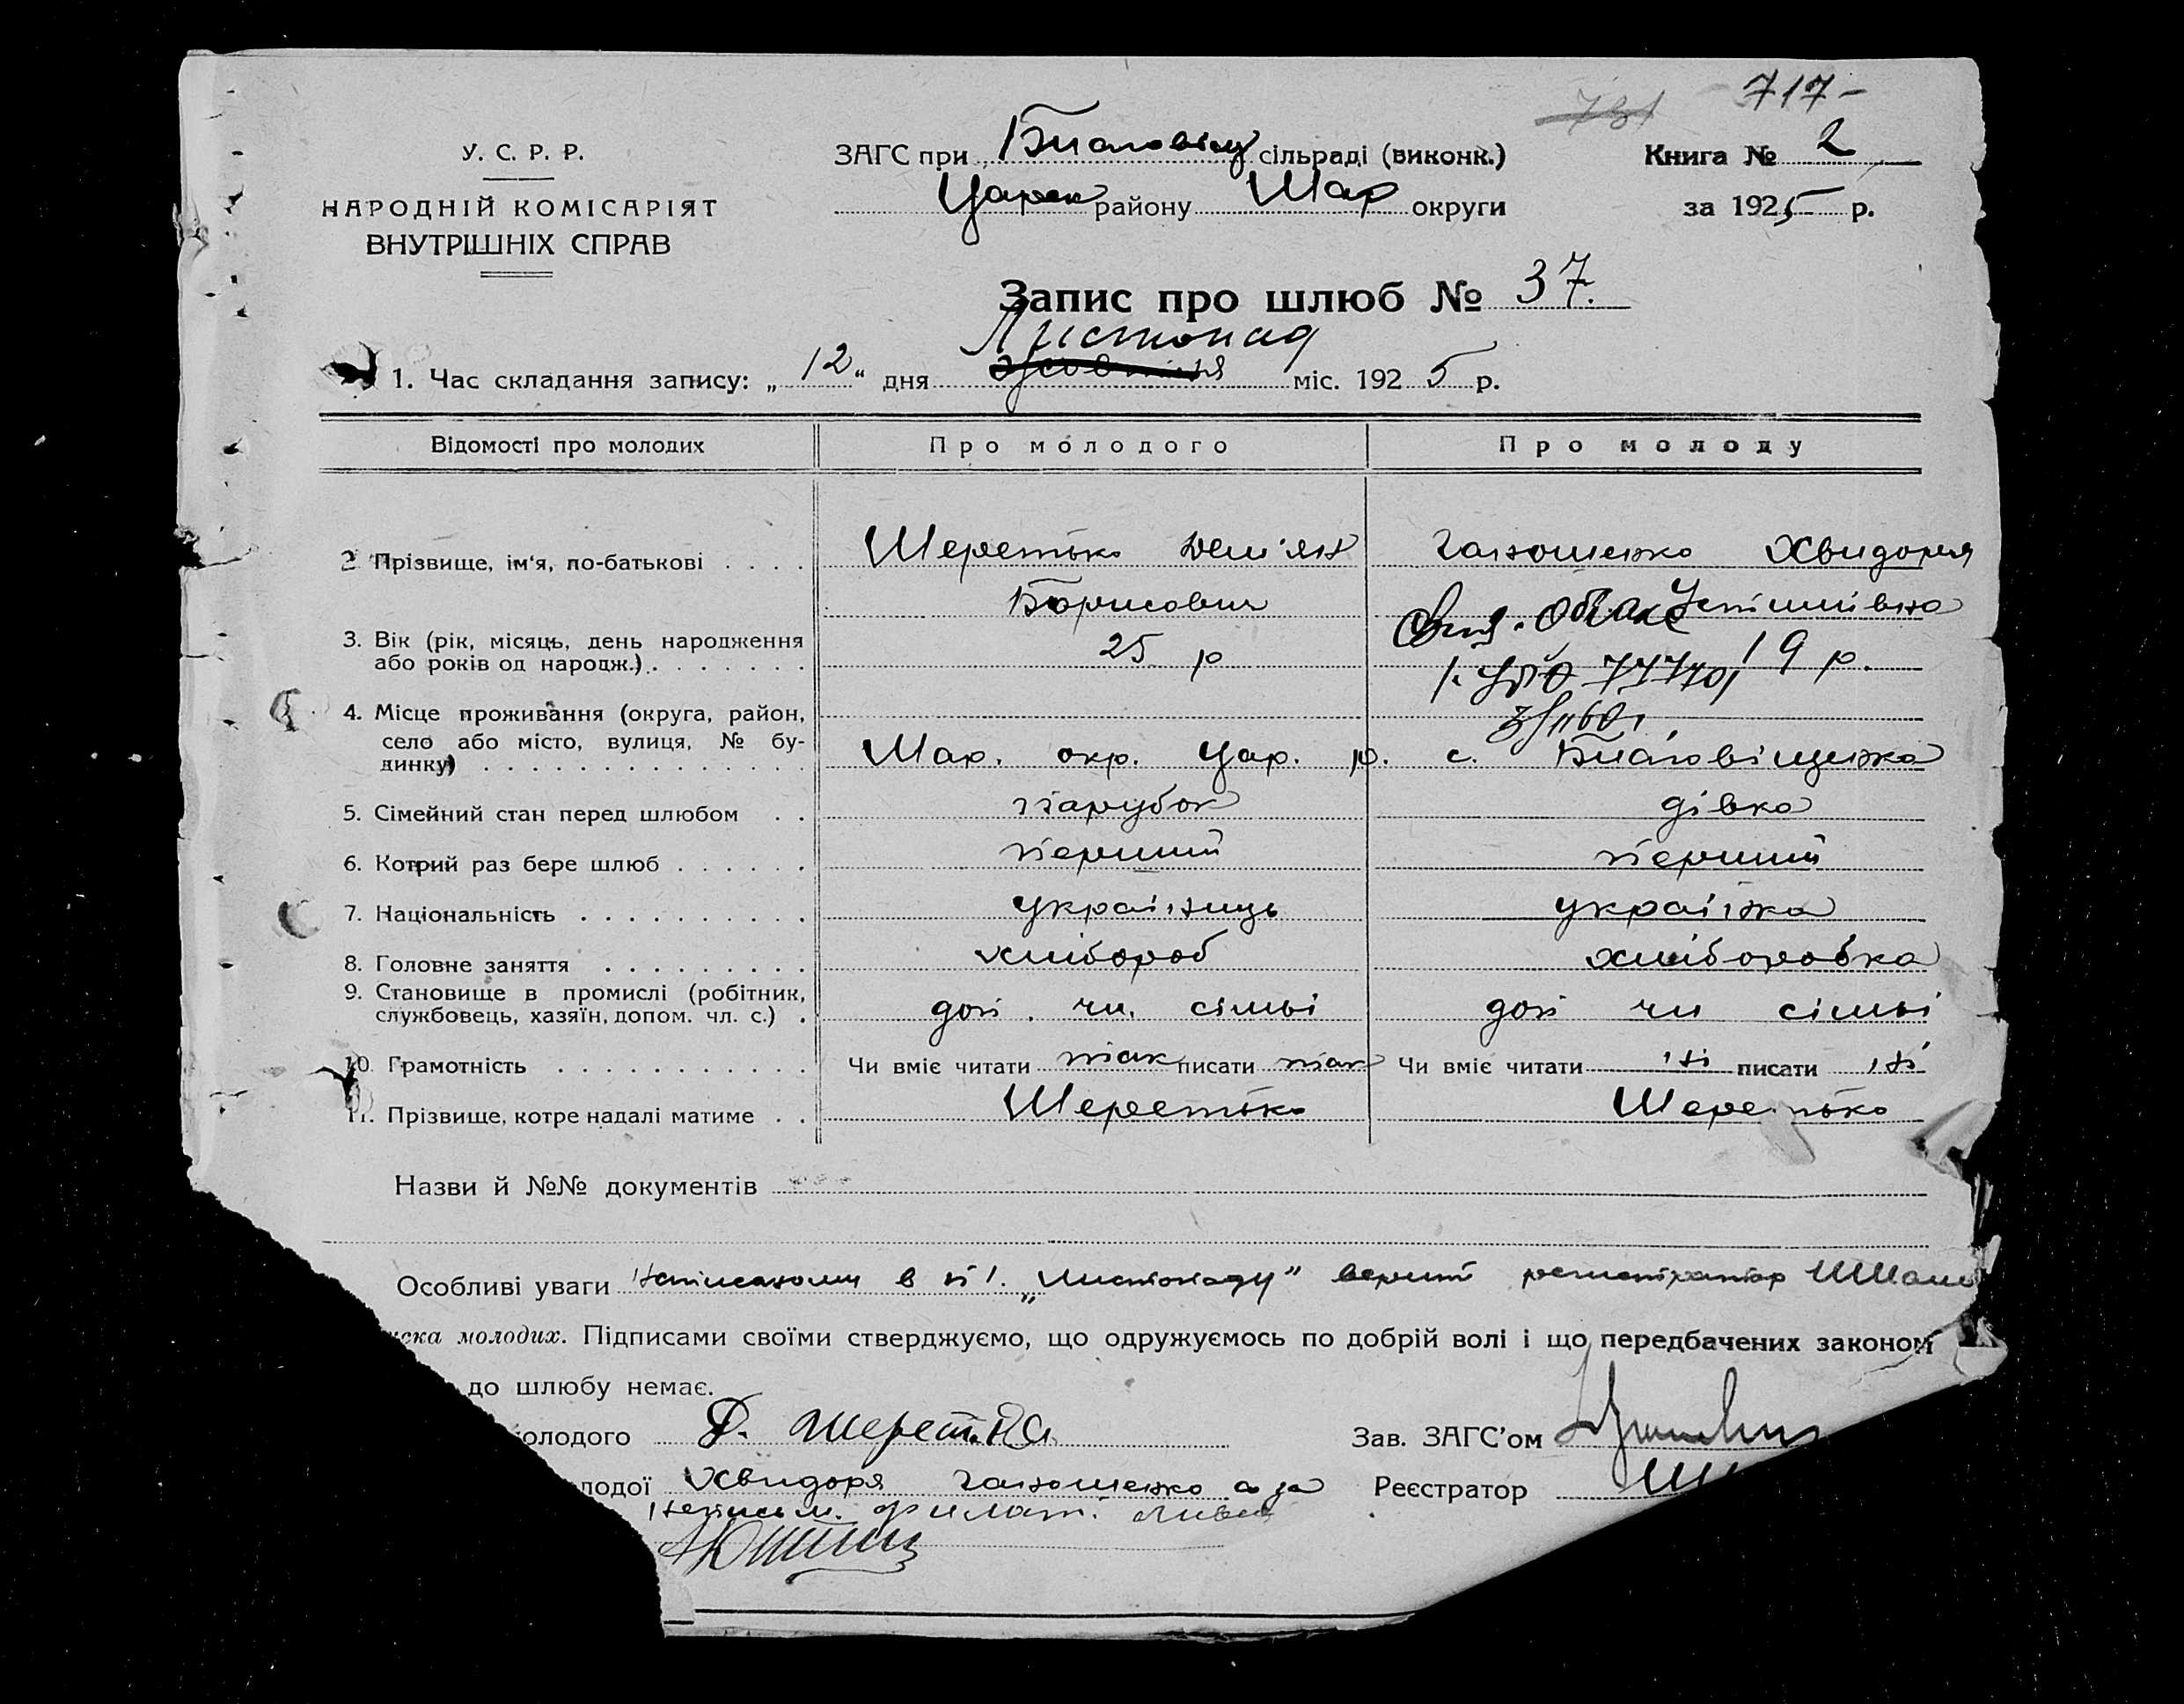 717-
731
У. С. Р. Р.
НАРОДНІЙ КОМІСАРІЯТ
ВНУТРІШНІХ СПРАВ
ЗАГС при Благовіщ сільраді (виконк.)
Царек району Мар округи
Книга № 2
за 1925 р.
Запис про шлюб № 37.
Листопад
1. Час складання запису: „12“ дня жовтня міс. 1925 р.
Відомості про молодих Про молодого Про молоду
2 Прізвище, ім'я, по-батькові . . . . Шеретько Дем'ян Ганошенко Хвидоря
Борисович Устимівна
3. Вік (рік, місяць, день народження
або років од народж.) . . . . . . . 25 р 19 р.
4. Місце проживання (округа, район,
село або місто, вулиця, № бу-
динку) . . . . . . . . . . . . . . Мар. окр. Цар. р. с. Благовіщенка
5. Сімейний стан перед шлюбом . . парубок дівка
6. Котрий раз бере шлюб . . . . . . перший перший
7. Національність . . . . . . . . . . українець українка
8. Головне заняття . . . . . . . . . хлібороб хліборобка
9. Становище в промислі (робітник,
службовець, хазяїн, допом. чл. с.) . доп. чл. сімьі доп чл сімьі
10. Грамотність . . . . . . . . . . . Чи вміє читати так писати так Чи вміє читати ні писати ні
11. Прізвище, котре надалі матиме . . Шеретько Шеретько
Назви й №№ документів
Особливі уваги Написаному в п 1. „Листопаду“ верить регистратор
иска молодих. Підписами своїми стверджуємо, що одружуємось по добрій волі і що передбачених законом
до шлюбу немає.
олодого Д. Шеретько Зав. ЗАГС'ом
лодої Хвидоря Ганошенко а за Реєстратор
непись м.